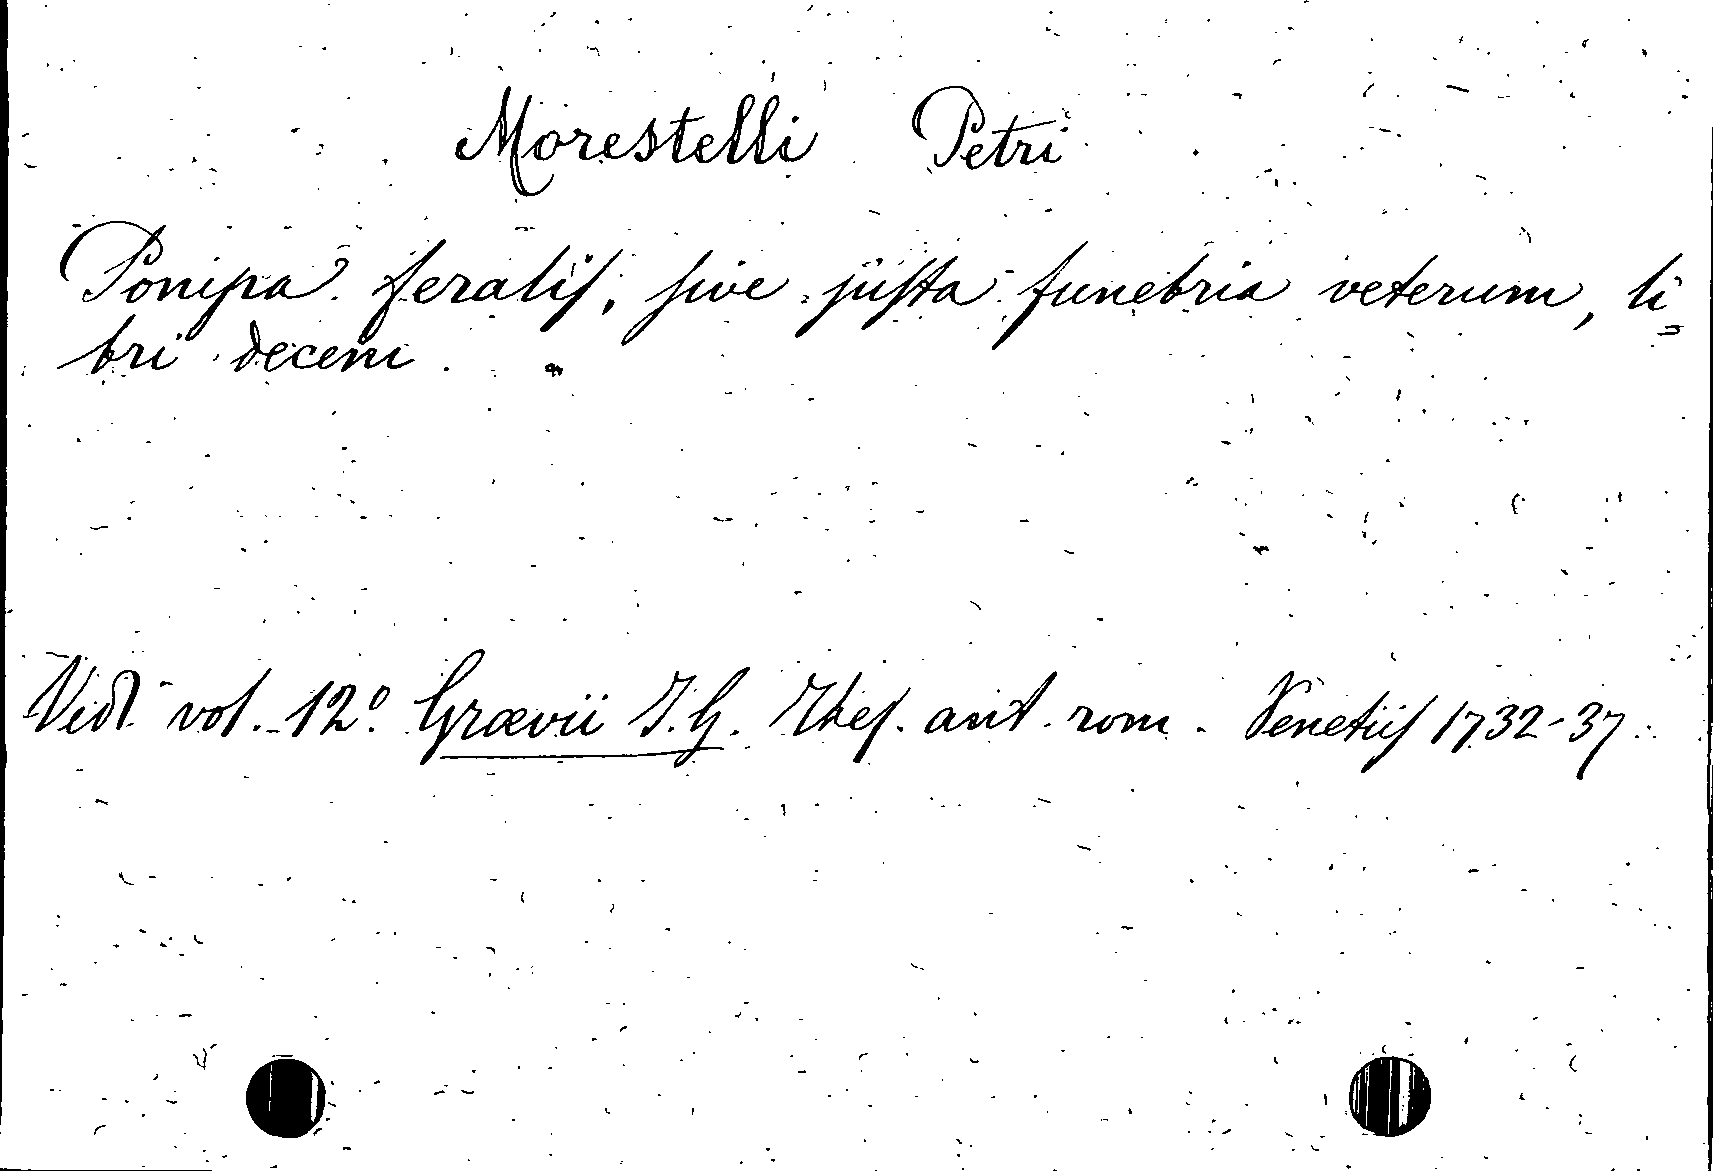 Morestelli Petri
Pompa feralis, sive justa funebria veterum, li=
bri decem.
Vedi vol. 12º Grævii J. G. Thes. ant. rom. Venetiis 1732-37.